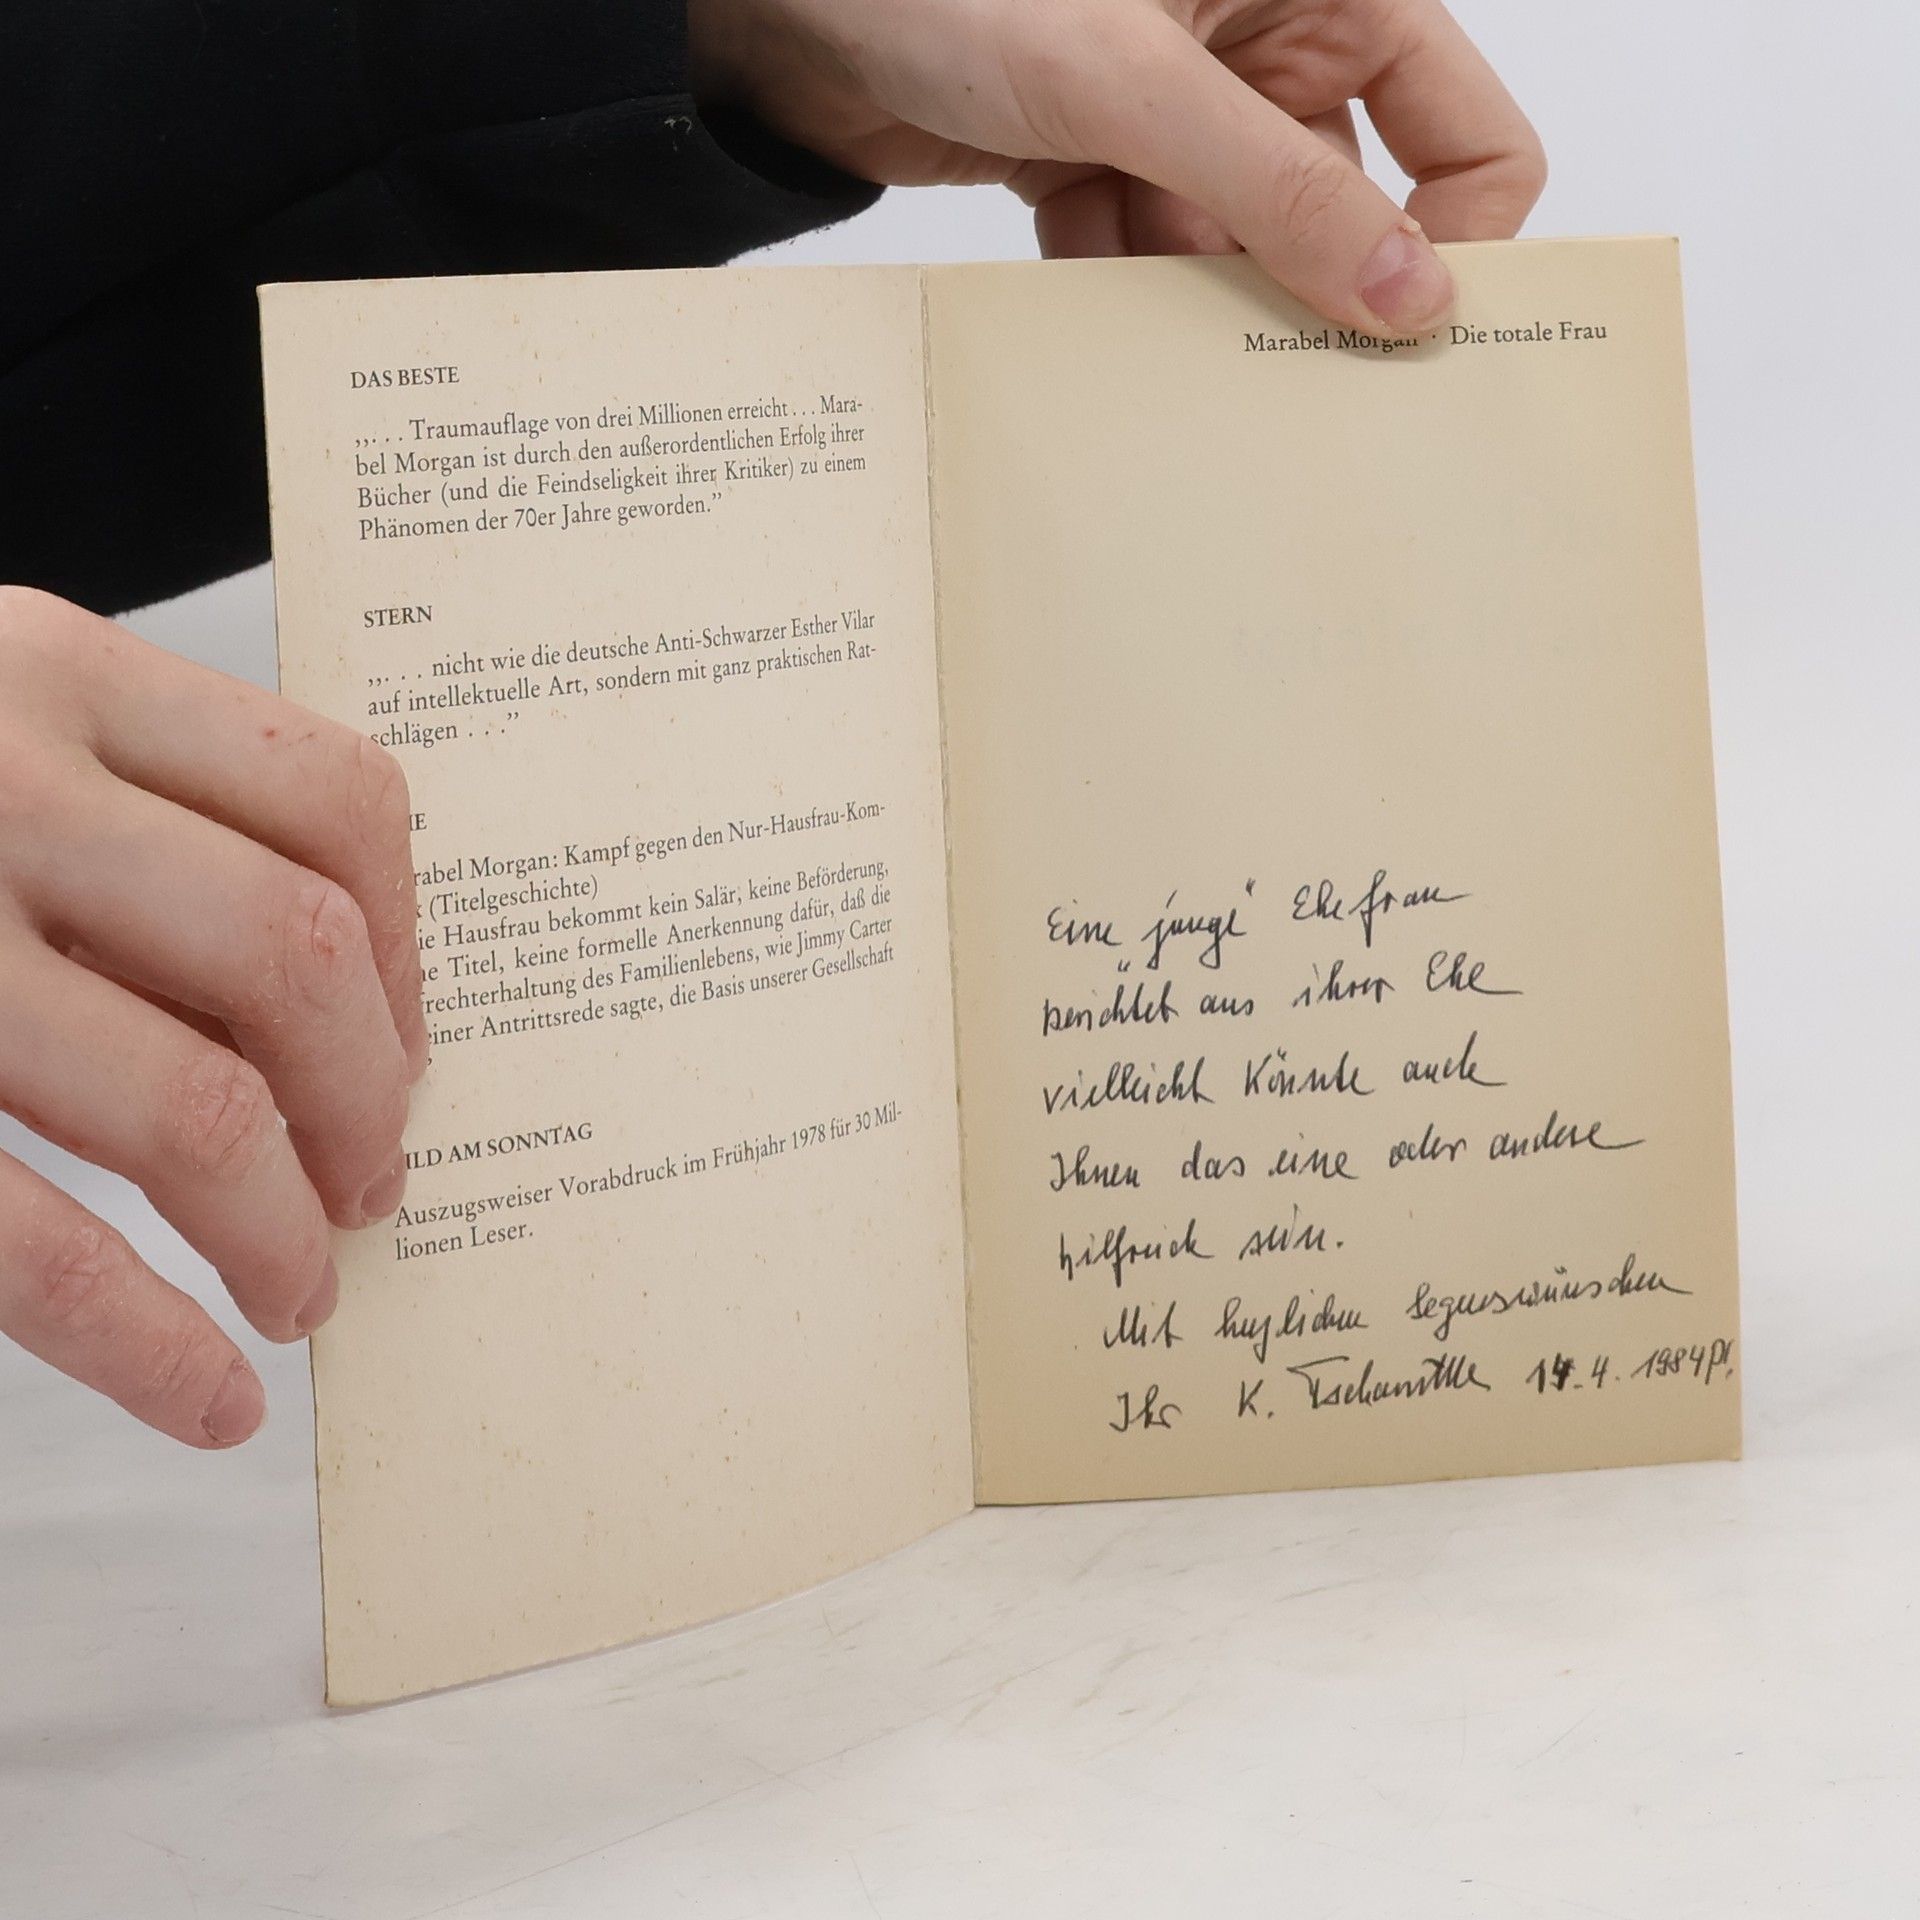 DAS BESTE
„. . . Traumauflage von drei Millionen erreicht . . . Mara-
bel Morgan ist durch den außerordentlichen Erfolg ihrer
Bücher (und die Feindseligkeit ihrer Kritiker) zu einem
Phänomen der 70er Jahre geworden.”
STERN
„. . . nicht wie die deutsche Anti-Schwarzer Esther Vilar
auf intellektuelle Art, sondern mit ganz praktischen Rat-
schlägen . . .”
IE
rabel Morgan: Kampf gegen den Nur-Hausfrau-Kom-
x (Titelgeschichte)
ie Hausfrau bekommt kein Salär, keine Beförderung,
ne Titel, keine formelle Anerkennung dafür, daß die
frechterhaltung des Familienlebens, wie Jimmy Carter
einer Antrittsrede sagte, die Basis unserer Gesellschaft
ILD AM SONNTAG
Auszugsweiser Vorabdruck im Frühjahr 1978 für 30 Mil-
lionen Leser.
Marabel Morgan · Die totale Frau
Eine „junge“ Ehefrau
berichtet aus ihrer Ehe
vielleicht könnte auch
Ihnen das eine oder andere
hilfreich sein.
Mit herzlichen Segenswünschen
Ihr K. 14.4.1984